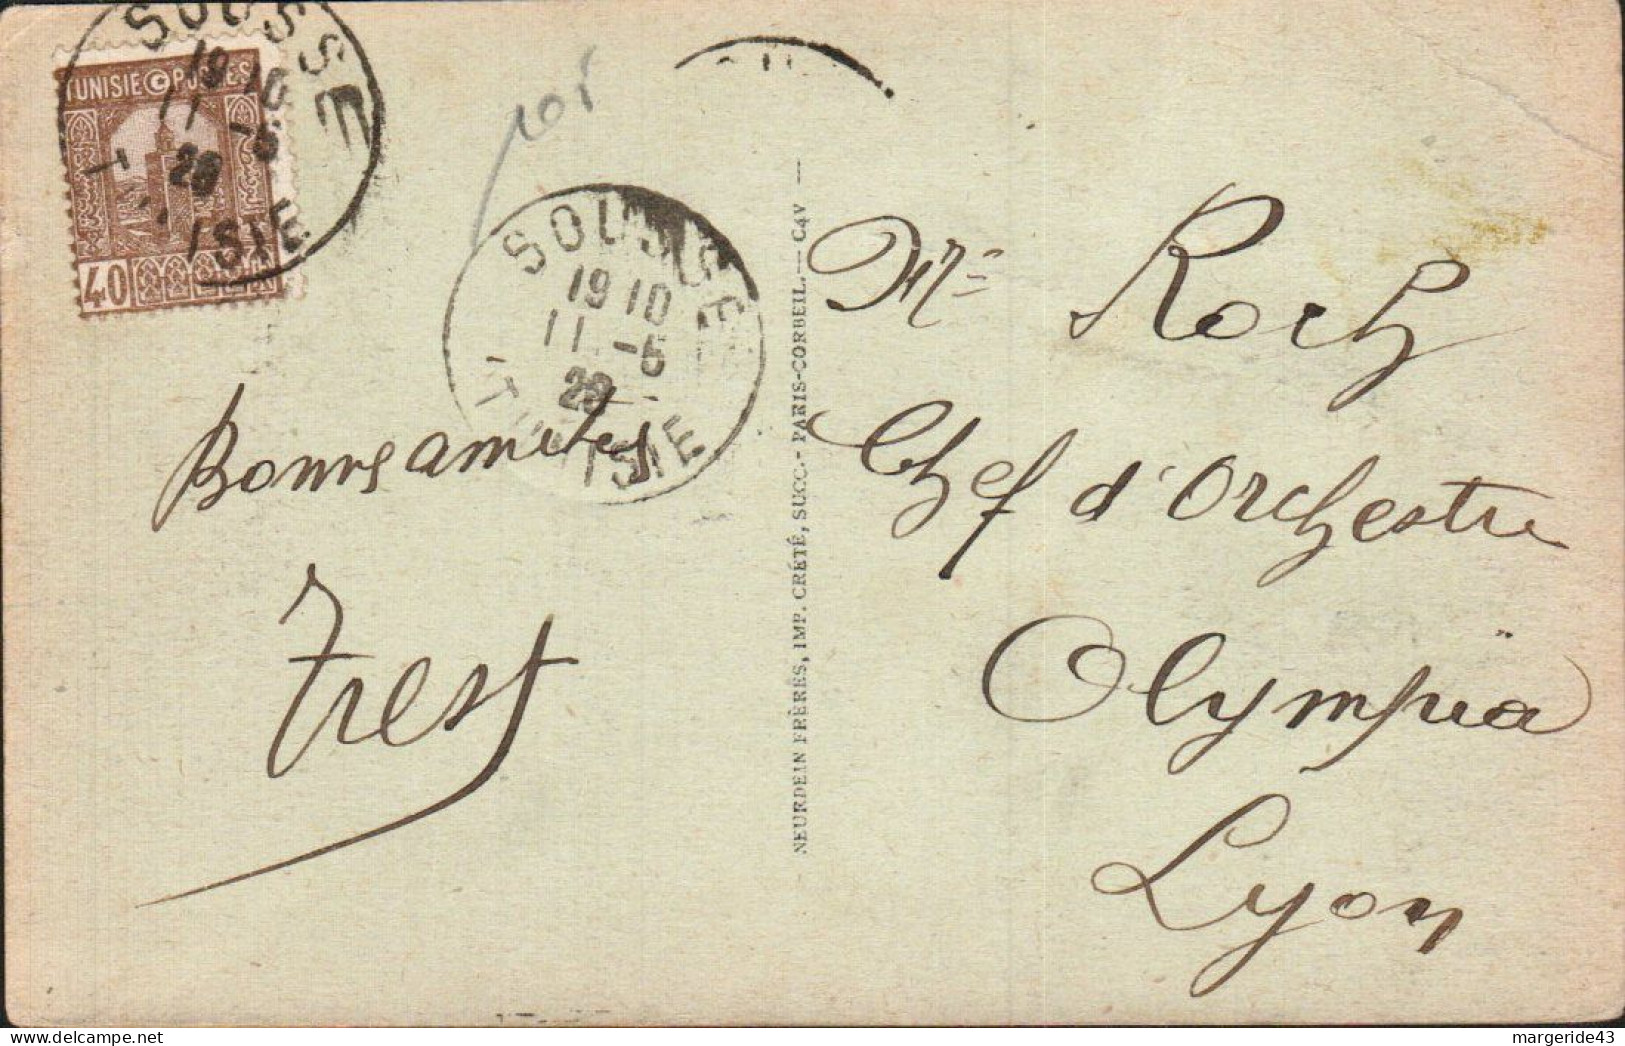 SOUSSE
19 10
11 -5
28
TUNISIE
TUNISIE POSTES
40
SOUSSE
19 10
11 -5
28
TUNISIE
Bonnes amitiés
NEURDEIN FRÈRES, IMP. CRÉTÉ, SUCC.- PARIS-CORBEIL.— C4V —
Mr Roch
Chef d'Orchestre
Olympia
Lyon
margeride43